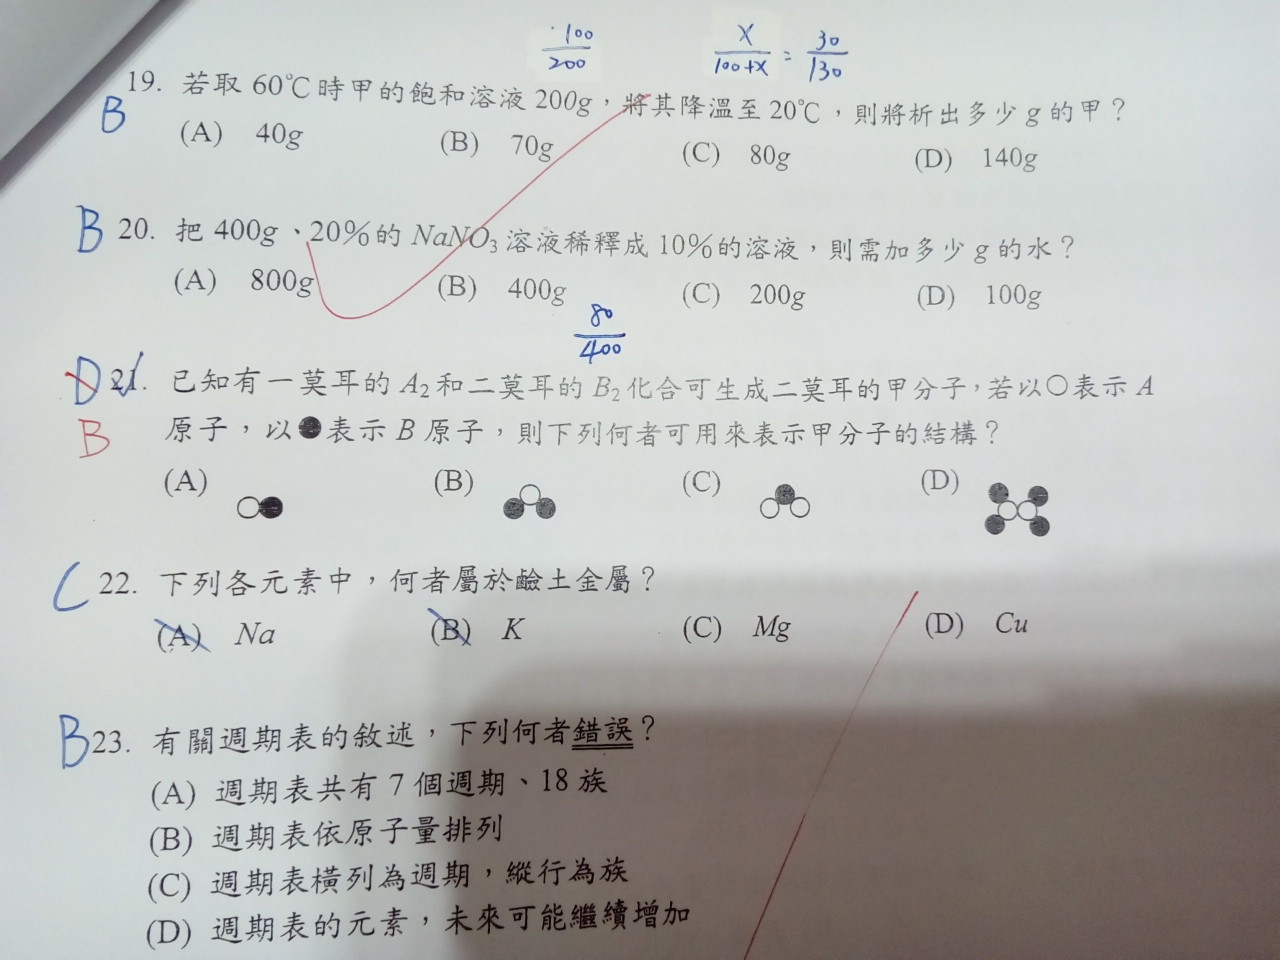 100
200
X
100+X
=
30
130
B
19. 若取 60℃時甲的飽和溶液 200g，將其降溫至 20℃，則將析出多少 g 的甲？
(A) 40g (B) 70g (C) 80g (D) 140g
B
20. 把 400g、20%的 NaNO₃ 溶液稀釋成 10%的溶液，則需加多少 g 的水？
(A) 800g (B) 400g (C) 200g (D) 100g
80
400
D
21. 已知有一莫耳的 A₂ 和二莫耳的 B₂ 化合可生成二莫耳的甲分子，若以○表示 A
B
原子，以●表示 B 原子，則下列何者可用來表示甲分子的結構？
(A) (B) (C) (D)
C
22. 下列各元素中，何者屬於鹼土金屬？
(A) Na (B) K (C) Mg (D) Cu
B
23. 有關週期表的敘述，下列何者錯誤？
(A) 週期表共有 7 個週期、18 族
(B) 週期表依原子量排列
(C) 週期表橫列為週期，縱行為族
(D) 週期表的元素，未來可能繼續增加